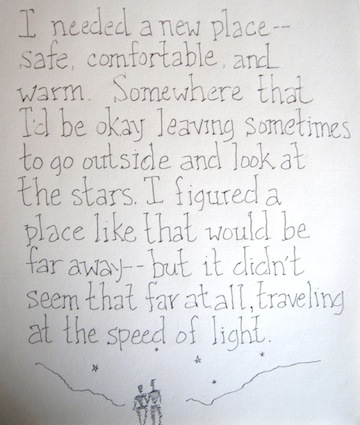 I needed a new place--
safe, comfortable, and
warm. Somewhere that
I'd be okay leaving sometimes
to go outside and look at
the stars. I figured a
place like that would be
far away--but it didn't
seem that far at all, traveling
at the speed of light.